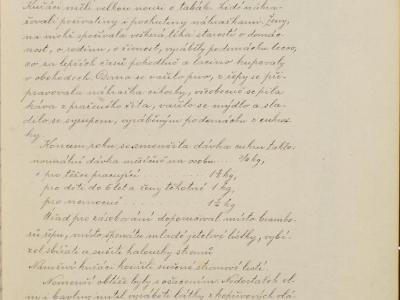 Kuřáci měli velkou nouzi o tabák. Lidé nahra-
žovali poživatiny i pochutiny náhražkami. Ženy,
na nichž spočívala veškerá tíha starostí o domác-
nost, o rodinu, o živnost, vyráběly podomácku leccos,
co za lepších časů pohodlně a lacino kupovaly
v obchodech. Doma se vařilo pivo, z řepy se při-
pravovala náhražka cikorky, všeobecně se pila
káva z praženého žita, vařilo se mýdlo a sla-
dilo se syrupem, vyráběným podomácku z cukrov-
ky.
Koncem roku se zmenšila dávka cukru takto:
normální dávka měsíčně na osobu ... 3/4 kg,
" pro těžce pracující 1 1/4 kg,
pro děti do 6 let a ženy těhotné 1 kg,
pro nemocné 1 1/2 kg
Úřad pro zásobování doporučoval místo brambo-
rů řepu, místo špenátu mladé jetelové lístky, vybí-
zel sbírati a sušiti palousky stromů
Náruživí kuřáci kouřili sušené stromové listí.
Nemenší obtíže byly s ošacením. Nedostatek vl-
ny a bavlny nutil vyráběti látky z kopřivových vlá-